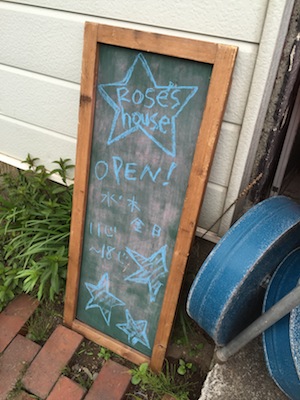 Rose's
house
OPEN!
水・木
金・日
11じ
〜18じ